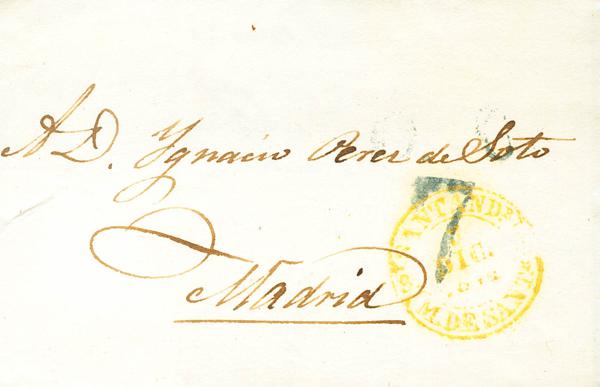 A D. Ygnacio Perez de Soto
Madrid
7
SANTANDER
DIC.
M. DE SANTR